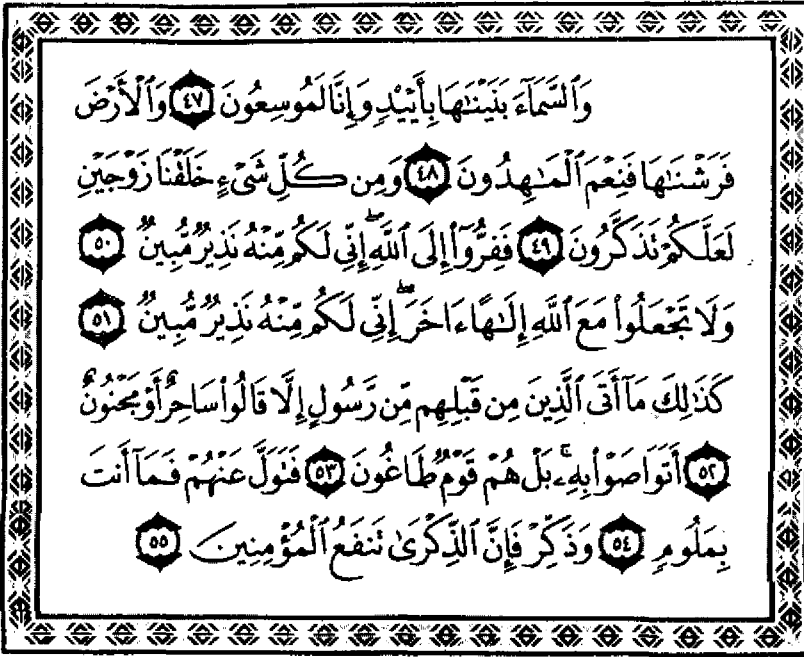 وَٱلسَّمَآءَ بَنَيْنَٰهَا بِأَيْيْدٍ وَإِنَّا لَمُوسِعُونَ ٤٧ وَٱلْأَرْضَ
فَرَشْنَٰهَا فَنِعْمَ ٱلْمَٰهِدُونَ ٤٨ وَمِن كُلِّ شَىْءٍ خَلَقْنَا زَوْجَيْنِ
لَعَلَّكُمْ تَذَكَّرُونَ ٤٩ فَفِرُّوٓا۟ إِلَى ٱللَّهِ ۖ إِنِّى لَكُم مِّنْهُ نَذِيرٌ مُّبِينٌ ٥٠
وَلَا تَجْعَلُوا۟ مَعَ ٱللَّهِ إِلَٰهًا ءَاخَرَ ۖ إِنِّى لَكُم مِّنْهُ نَذِيرٌ مُّبِينٌ ٥١
كَذَٰلِكَ مَآ أَتَى ٱلَّذِينَ مِن قَبْلِهِم مِّن رَّسُولٍ إِلَّا قَالُوا۟ سَاحِرٌ أَوْ مَجْنُونٌ
٥٢ أَتَوَاصَوْا۟ بِهِۦ ۚ بَلْ هُمْ قَوْمٌ طَاغُونَ ٥٣ فَتَوَلَّ عَنْهُمْ فَمَآ أَنتَ
بِمَلُومٍ ٥٤ وَذَكِّرْ فَإِنَّ ٱلذِّكْرَىٰ تَنفَعُ ٱلْمُؤْمِنِينَ ٥٥